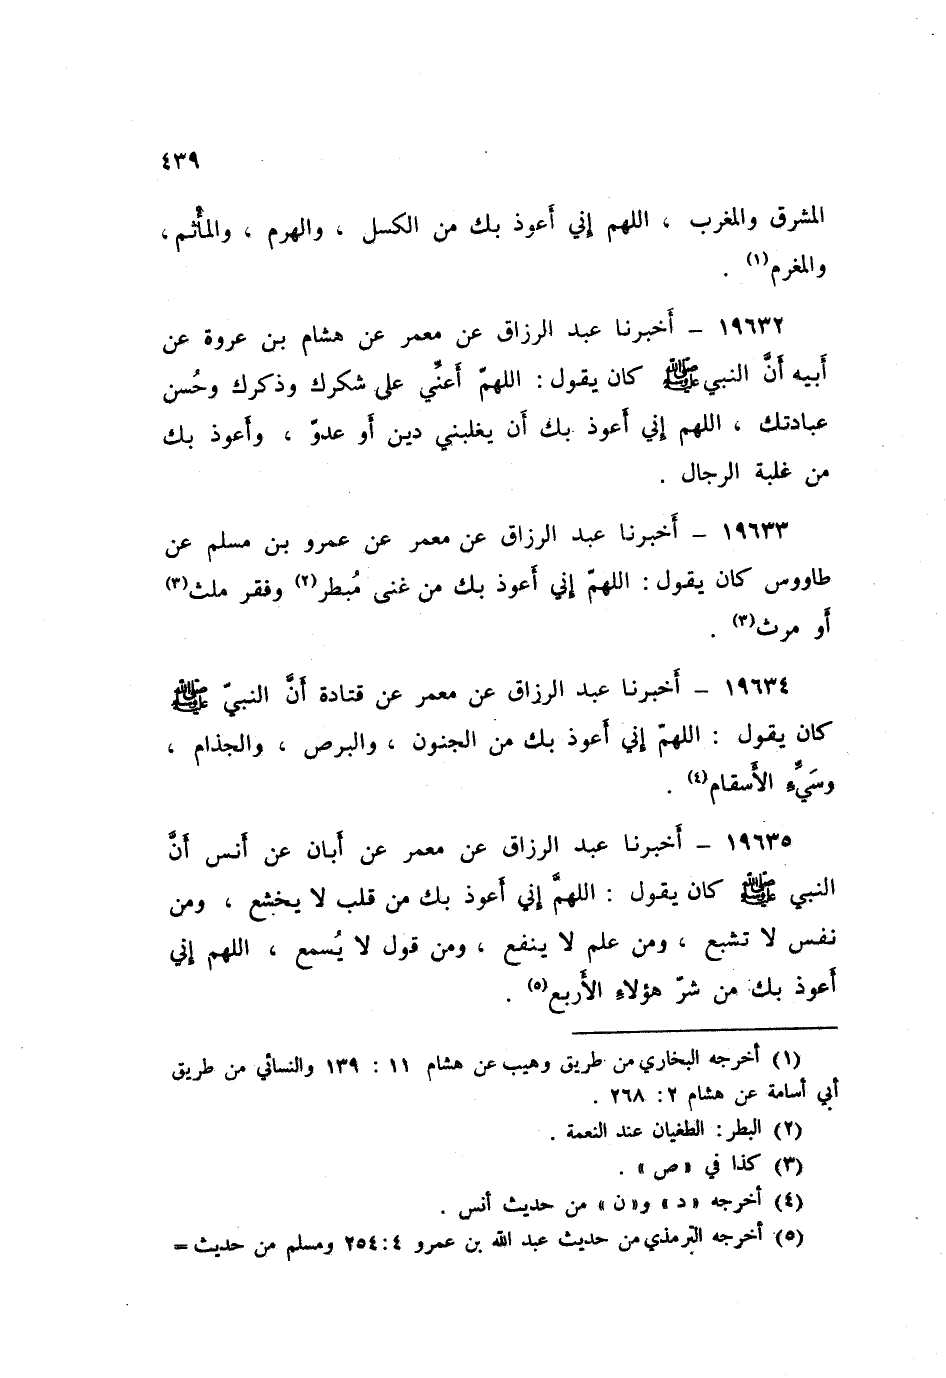 ٤٣٩
المشرق والمغرب ، اللهم إني أعوذ بك من الكسل ، والهرم ، والمأْثم ،
والمغرم(١) .
١٩٦٣٢ – أَخبرنا عبد الرزاق عن معمر عن هشام بن عروة عن
أَبيه أَنَّ النبي ﷺ كان يقول : اللهمّ أَعنِّي على شكرك وذكرك وحُسن
عبادتك ، اللهم إني أَعوذ بك أَن يغلبني دين أَو عدوّ ، وأَعوذ بك
من غلبة الرجال .
١٩٦٣٣ – أَخبرنا عبد الرزاق عن معمر عن عمرو بن مسلم عن
طاووس كان يقول : اللهمّ إني أَعوذ بك من غنى مُبطر(٢) وفقر ملث(٣)
أَو مرث(٣) .
١٩٦٣٤ – أَخبرنا عبد الرزاق عن معمر عن قتادة أَنَّ النبيّ ﷺ
كان يقول : اللهمّ إني أَعوذ بك من الجنون ، والبرص ، والجذام ،
وسَيِّءِ الأَسقام(٤) .
١٩٦٣٥ – أَخبرنا عبد الرزاق عن معمر عن أَبان عن أَنس أَنَّ
النبي ﷺ كان يقول : اللهمَّ إني أَعوذ بك من قلب لا يخشع ، ومن
نفس لا تشبع ، ومن علم لا ينفع ، ومن قول لا يُسمع ، اللهم إني
أَعوذ بك من شرّ هؤلاءِ الأَربع(٥) .
(١) أخرجه البخاري من طريق وهيب عن هشام ١١ : ١٣٩ والنسائي من طريق
أبي أسامة عن هشام ٢ : ٢٦٨ .
(٢) البطر : الطغيان عند النعمة .
(٣) كذا في « ص » .
(٤) أخرجه « د » و« ن » من حديث أنس .
(٥) أخرجه الترمذي من حديث عبد الله بن عمرو ٤ : ٢٥٤ ومسلم من حديث =